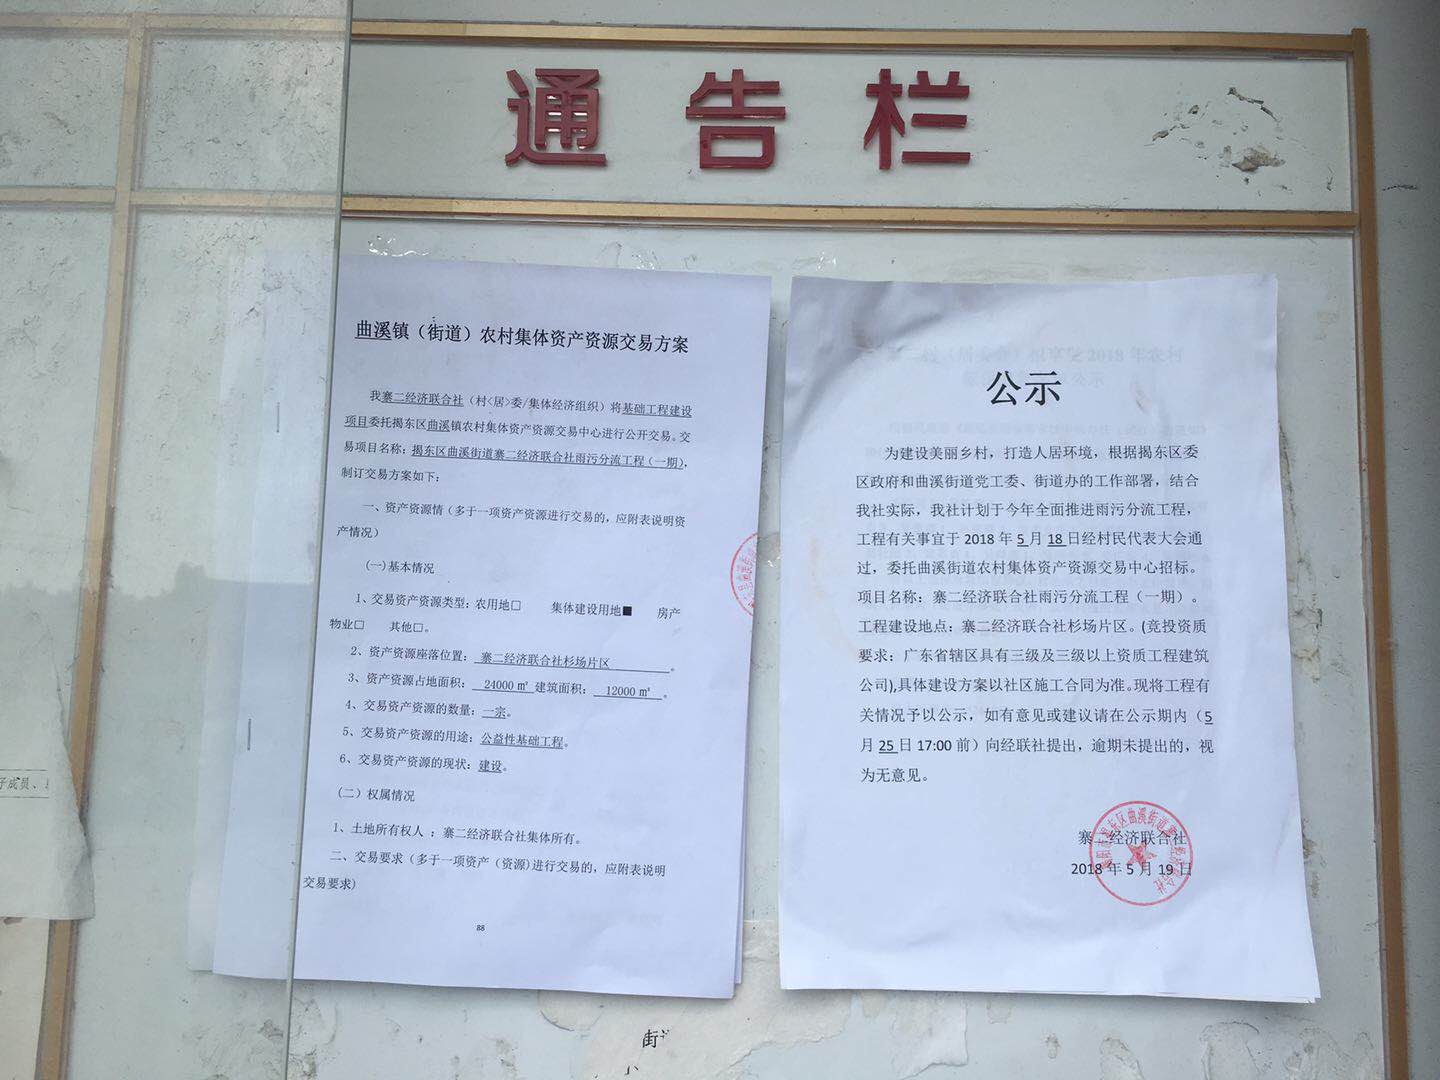 通告栏
曲溪镇（街道）农村集体资产资源交易方案
我寨二经济联合社（村<居>委/集体经济组织）将基础工程建设
项目委托揭东区曲溪镇农村集体资产资源交易中心进行公开交易。交
易项目名称：揭东区曲溪街道寨二经济联合社雨污分流工程（一期），
制订交易方案如下：
一、资产资源情（多于一项资产资源进行交易的，应附表说明资
产情况）
(一)基本情况
1、交易资产资源类型：农用地□ 集体建设用地■ 房产
物业□ 其他□。
2、资产资源座落位置： 寨二经济联合社杉场片区 。
3、资产资源占地面积： 24000㎡ 建筑面积： 12000㎡ 。
4、交易资产资源的数量：一宗。
5、交易资产资源的用途：公益性基础工程。
6、交易资产资源的现状：建设。
(二）权属情况
1、土地所有权人 ；寨二经济联合社集体所有。
二、交易要求（多于一项资产（资源)进行交易的，应附表说明
交易要求)
88
公示
为建设美丽乡村，打造人居环境，根据揭东区委
区政府和曲溪街道党工委、街道办的工作部署，结合
我社实际，我社计划于今年全面推进雨污分流工程，
工程有关事宜于 2018 年 5 月 18 日经村民代表大会通
过，委托曲溪街道农村集体资产资源交易中心招标。
项目名称：寨二经济联合社雨污分流工程（一期）。
工程建设地点：寨二经济联合社杉场片区。(竞投资质
要求：广东省辖区具有三级及三级以上资质工程建筑
公司),具体建设方案以社区施工合同为准。现将工程有
关情况予以公示，如有意见或建议请在公示期内（5
月 25 日 17:00 前）向经联社提出，逾期未提出的，视
为无意见。
寨二经济联合社
2018 年 5 月 19 日
子成员、
街